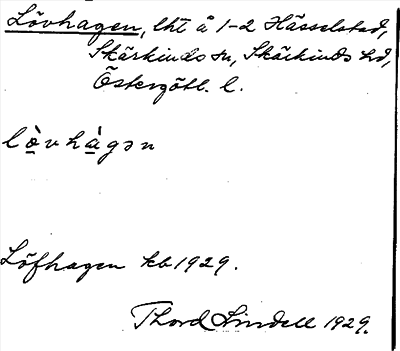 Lövhagen, lht å 1-2 Hässelstad,
Skärkinds sn, Skärkinds hd,
Östergötl. l.
lò̲vhà̲gən
Löfhagen kb 1929.
Thord Lindell 1929.